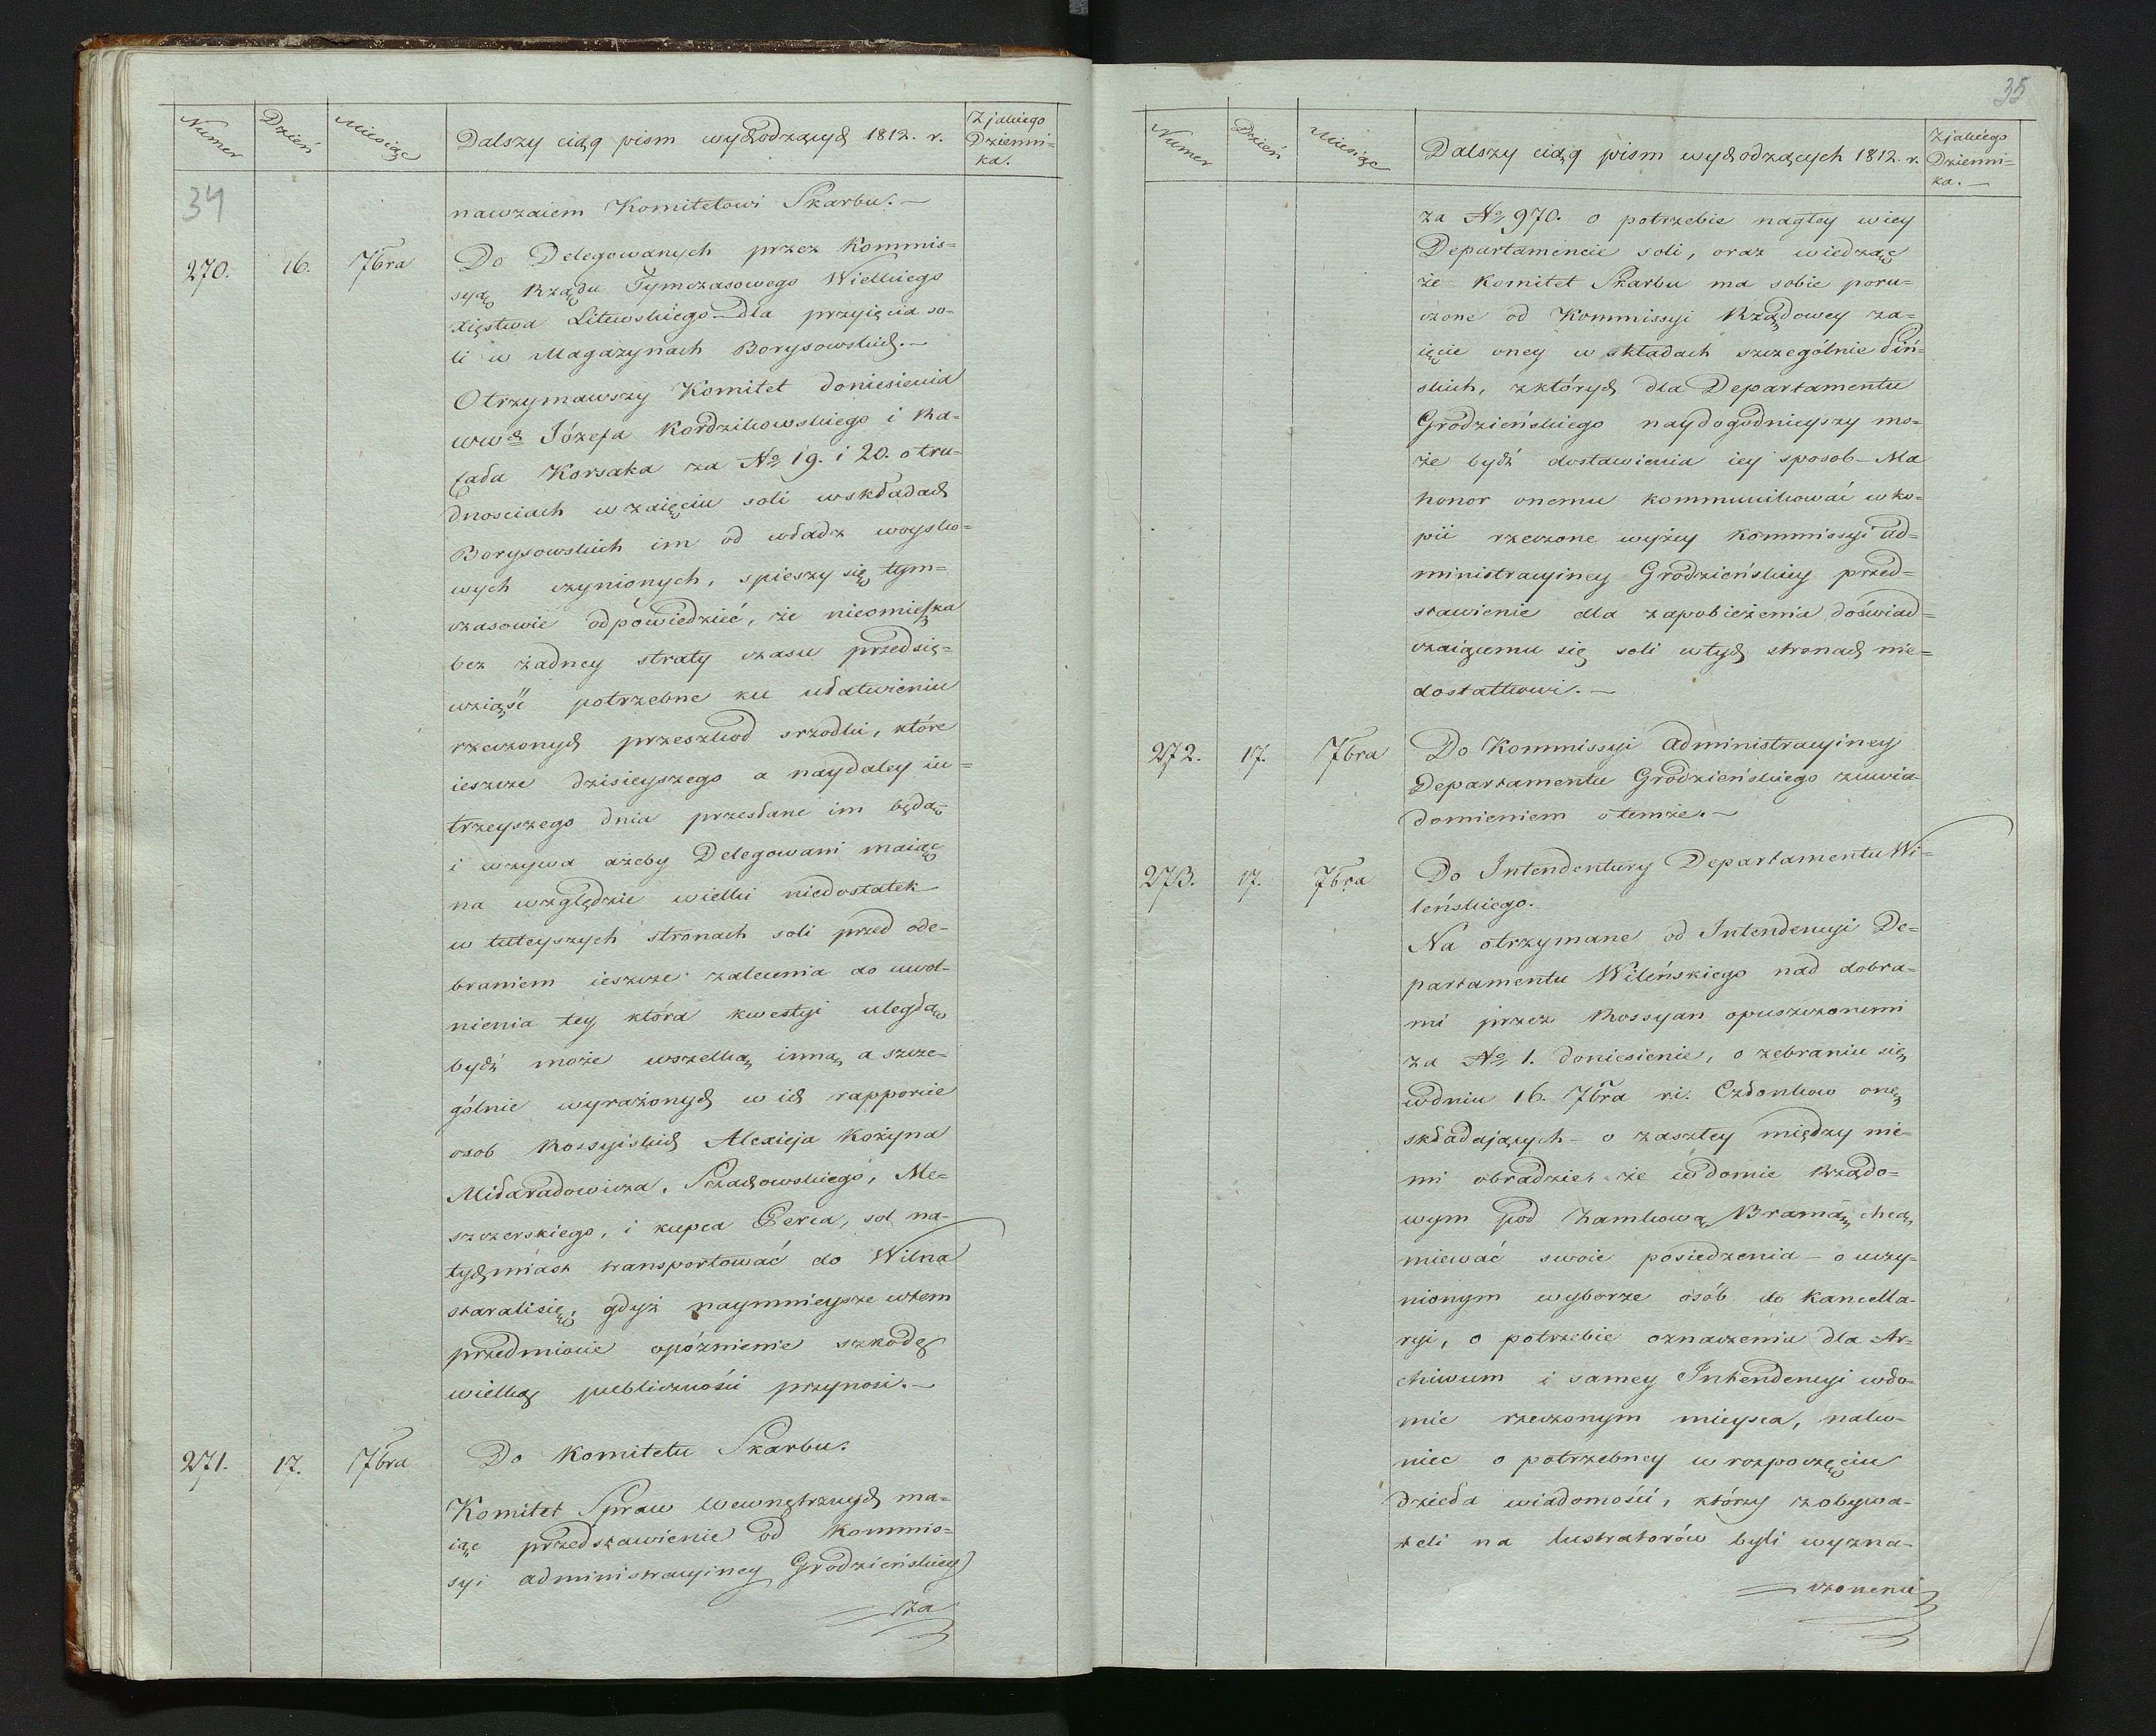 Numer
Dzień
Miesiąc
Dalszy ciąg pism wychodzących 1812. r.
Z jakiego
Dzienni=
ka.
34
nawzaiem Komitetowi Skarbu.—
270. 16. 7bra Do Delegowanych przez Kommis=
syą Rządu Tymczasowego Wielkiego
Xięstwa Litewskiego dla przyięcia so-
li w Magazynach Borysowskich.—
Otrzymawszy Komitet doniesienia
WWch Józefa Kordzikowskiego i Ra-
fała Korsaka za No 19. i 20. o tru-
dnosciach w zaięciu soli w składach
Borysowskich im od władz woysko=
wych czynionych, spieszy się tym=
czasowie odpówiedzieć, że nieomieszka
bez żadney straty czasu przedsię=
wziąść potrzebne ku ułatwieniu
rzeczonych przeszkod srzodki, które
ieszcze dzisieyszego a naydaley iu=
trzeyszego dnia przesłane im będą
i wzywa ażeby Delegowani maiąc
na względzie wielki niedostatek
w tuteyszych stronach soli przed ode-
braniem ieszcze zalecenia do uwol-
nienia tey która kwestyi uległą
bydź może wszelką inną a szcze-
gólnie wyrażonych w ich rapporcie
osob Rossyiskich Alexieja Kożyna
Miłaradowicza, Szachowskiego, Me-
szczerskiego, i kupca Gerca, sol na-
tychmiast transportować do Wilna
staralisię, gdyż naymnieysze wtem
przedmiocie opóznienie szkodę
wielką publiczności przynosi.—
271. 17. 7bra Do Komitetu Skarbu.
Komitet Spraw Wewnętrznych ma-
iąc przedstawienie od Kommis=
syi administracyiney Grodzieńskiey
za
35
Numer
Dzień
Miesiąc
Dalszy ciąg pism wychodzących 1812. r.
Z jakiego
Dzienni=
ka.—
za No 970. o potrzebie nagłey wiey
Departamencie soli, oraz wiedząc
że Komitet Skarbu ma sobie poru=
czone od Kommissyi Rządowey za=
ięcie oney w składach szczególnie Piń=
skich, zktórych dla Departamentu
Grodzieńskiego naydogodnieyszy mo=
że bydź dostawienia iey sposob – Ma
honor onemu kommunikować w ko=
pii rzeczone wyżey Kommissyi ad=
ministracyiney Grodzieńskiey przed=
stawienie dla zapobieżenia doświad=
czaiącemu się soli w tych stronach nie=
dostatkowi.—
272. 17. 7bra Do Kommissyi administracyiney
Departamentu Grodzieńskiego zuwia-
domieniem o temże.—
273. 17. 7bra Do Intendentury Departamentu Wi-
leńskiego.
Na otrzymane od Intendencyi De=
partamentu Wileńskiego nad dobra=
mi przez Rossyan opuszczonemi
za No 1. doniesienie, o zebraniu się
wdniu 16. 7bra r. i. Członkow onę
składaiących – o zaszłey między nie-
mi obradzie, że w domie Rządo=
wym pod Zamkową Bramą, chcą
miewać swoie posiedzenia – o uczy-
nionym wyborze osób do Kancella-
ryi, o potrzebie oznaczenia dla Ar-
chiwum i samey Intendencyi wdo-
mie rzeczonym mieysca, nako-
niec o potrzebney w rozpoczęciu
dzieła wiadomości, którzy z obywa-
teli na lustratorów byli wyzna-
czonemi